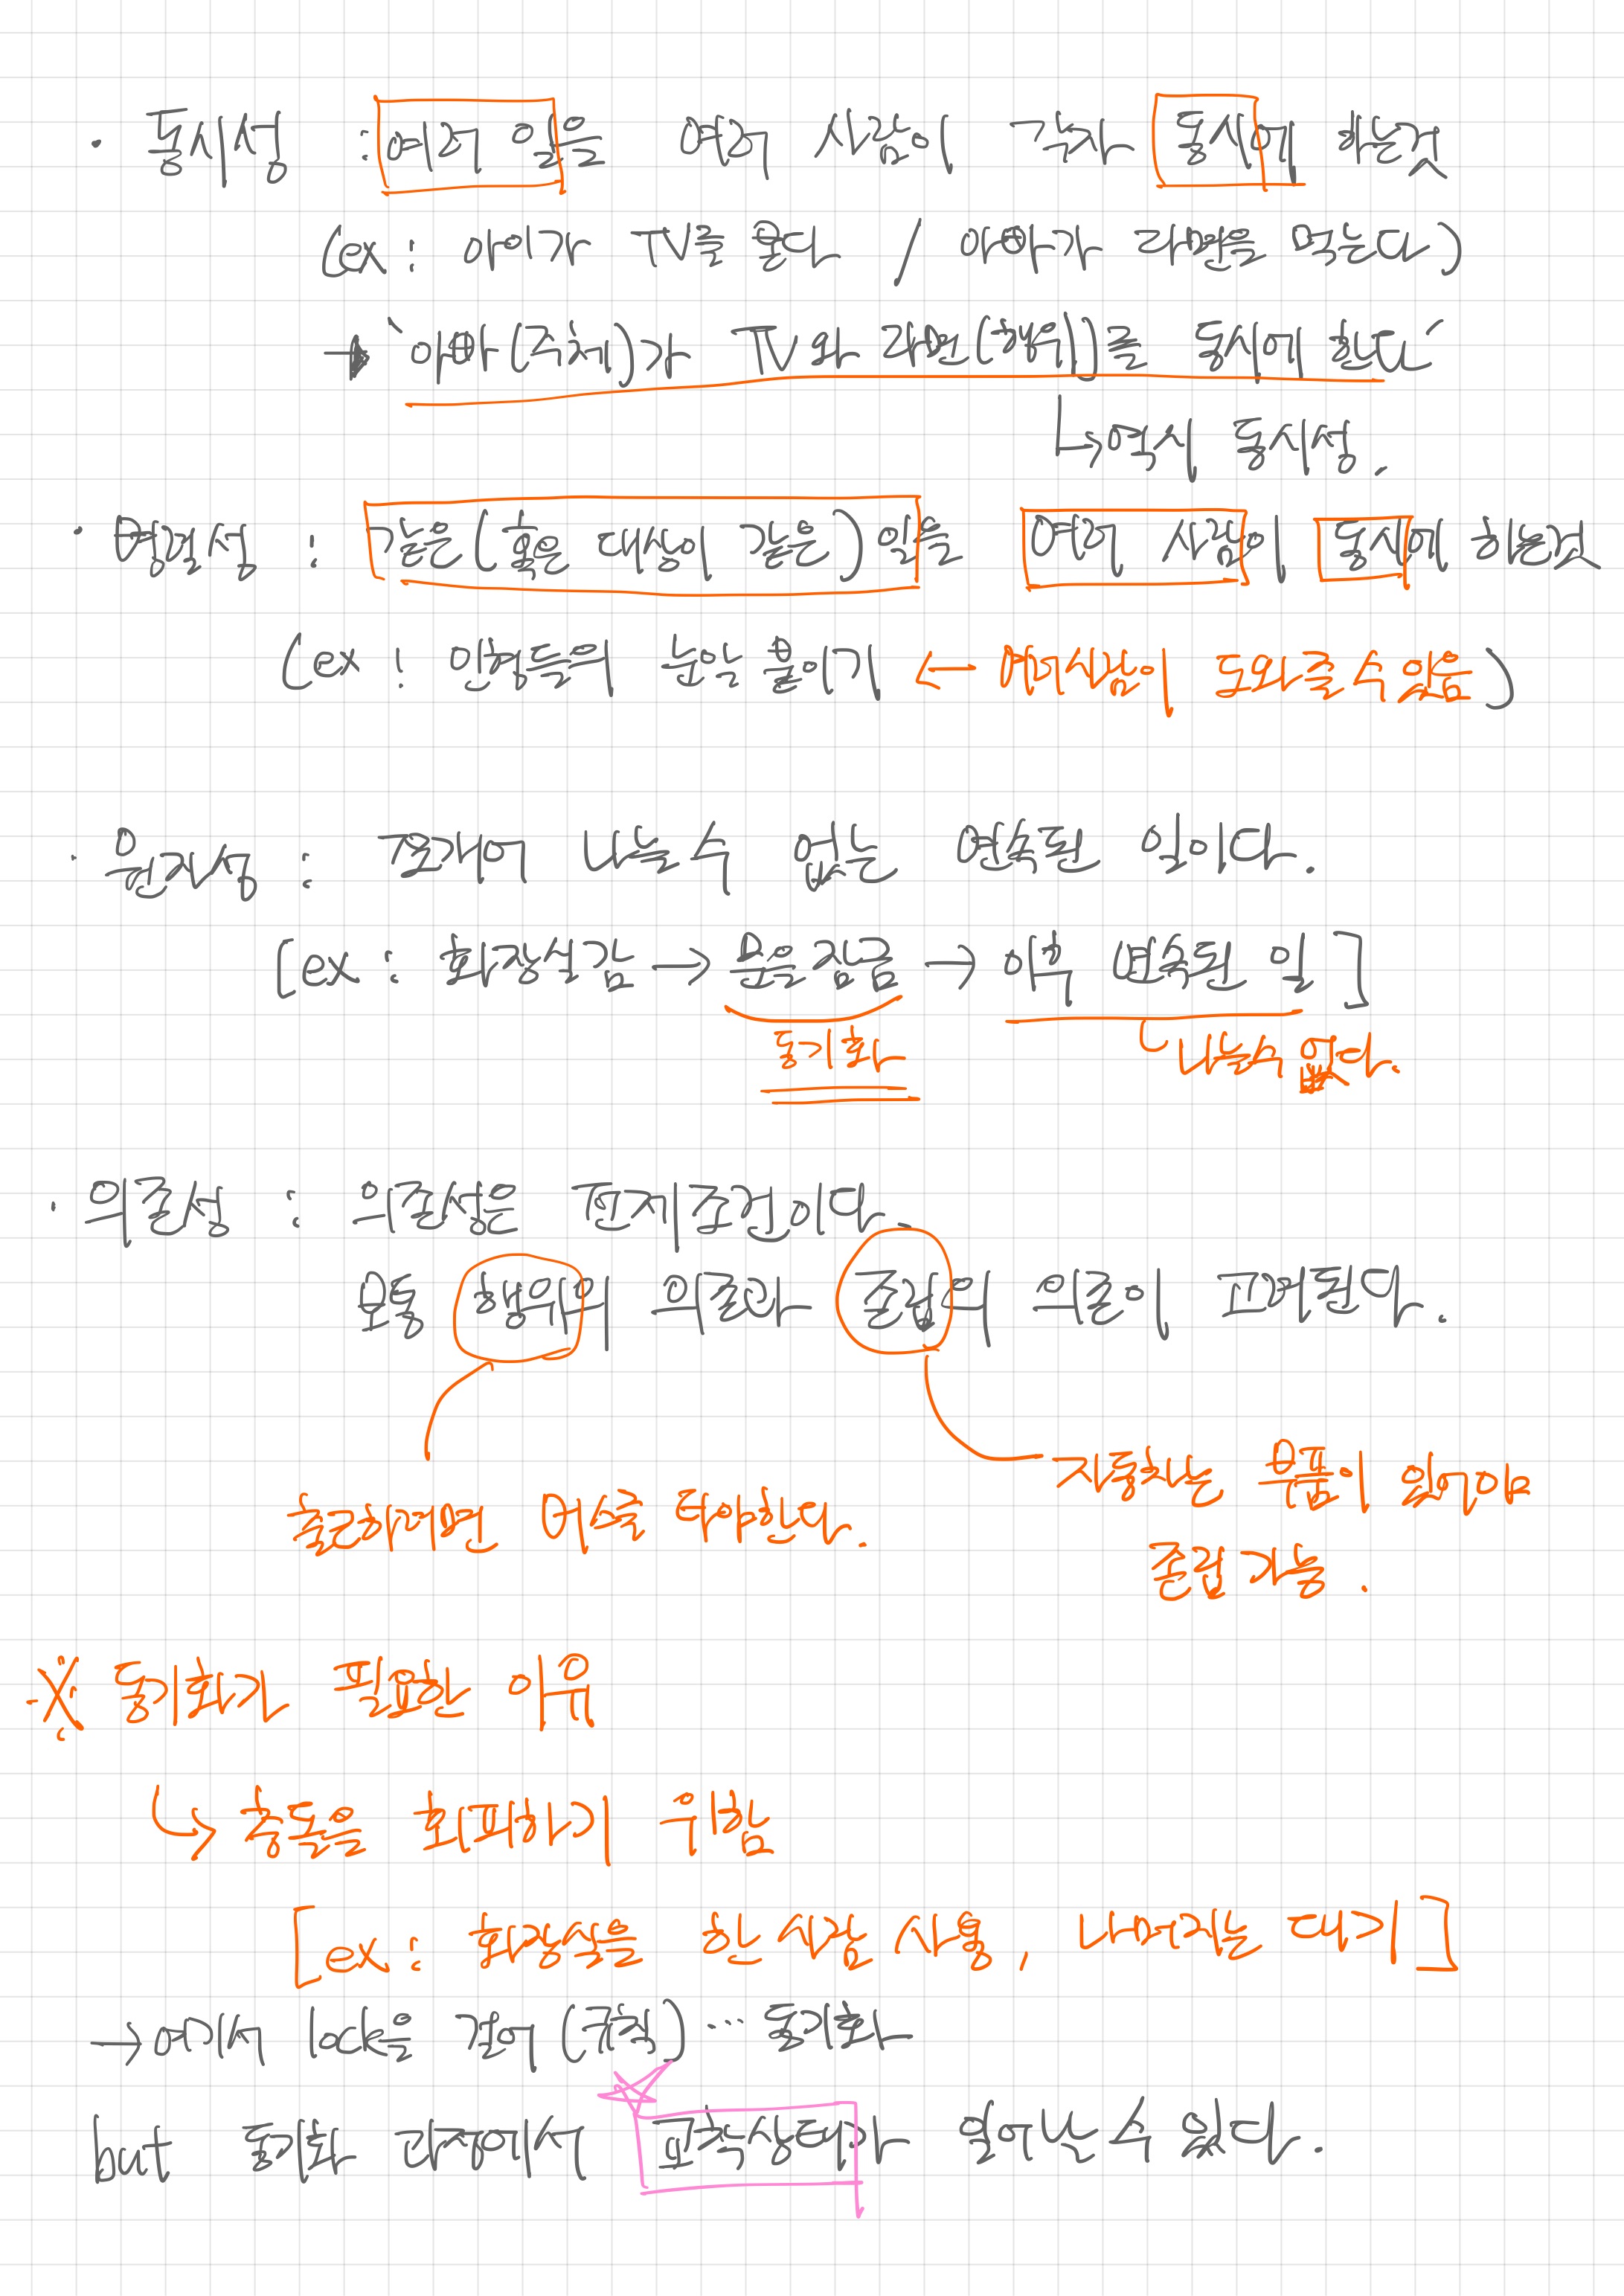 · 동시성 : 여러 일을 여러 사람이 각자 동시에 하는것
(ex : 아이가 TV를 본다 / 아빠가 라면을 먹는다)
→ '아빠(주체)가 TV와 라면(행위)를 동시에 한다'
↳ 역시 동시성.
· 병렬성 : 같은(혹은 대상이 같은) 일을 여러 사람이 동시에 하는것
(ex : 인형들의 눈알 붙이기 ← 여러사람이 도와줄 수 있음)
· 원자성 : 쪼개어 나눌 수 없는 연속된 일이다.
[ex : 화장실감 → 문을 잠금 → 이후 연속된 일]
동기화 ↳ 나눌수 없다.
· 의존성 : 의존성은 전제조건이다.
보통 행위의 의존과 존립의 의존이 고려된다.
자동차는 부품이 있어야
출근하려면 버스를 타야한다.
존립 가능.
※ 동기화가 필요한 이유
↳ 충돌을 회피하기 위함
[ex : 화장실을 한 사람 사용, 나머지는 대기]
→ 여기서 lock을 걸어 (규칙) … 동기화
but 동기화 과정에서 교착상태가 일어날 수 있다.